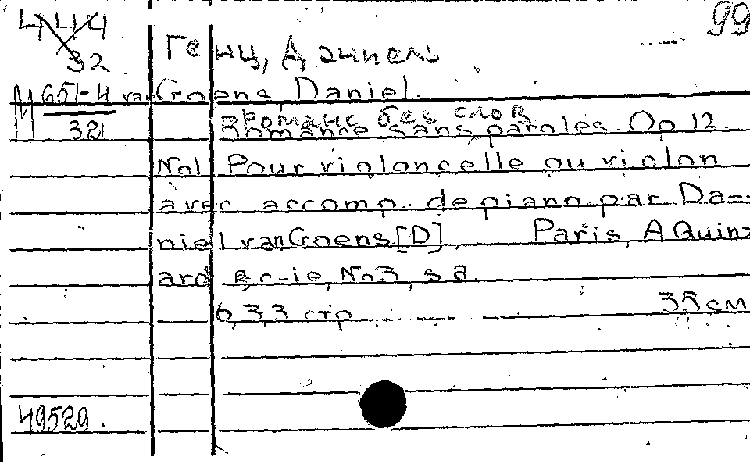 99
4114
32
Генц, Даниель
М 651-4
32
van Goens, Daniel.
Романс без слов
Romance sans paroles. Op 12
No1 Pour violoncelle ou violon
avec accomp. de piano par Da-
niel van Goens [D]. Paris, A Quinz
ard et C-ie, No 3, s a
6,3,3 стр. 35 см
49529.